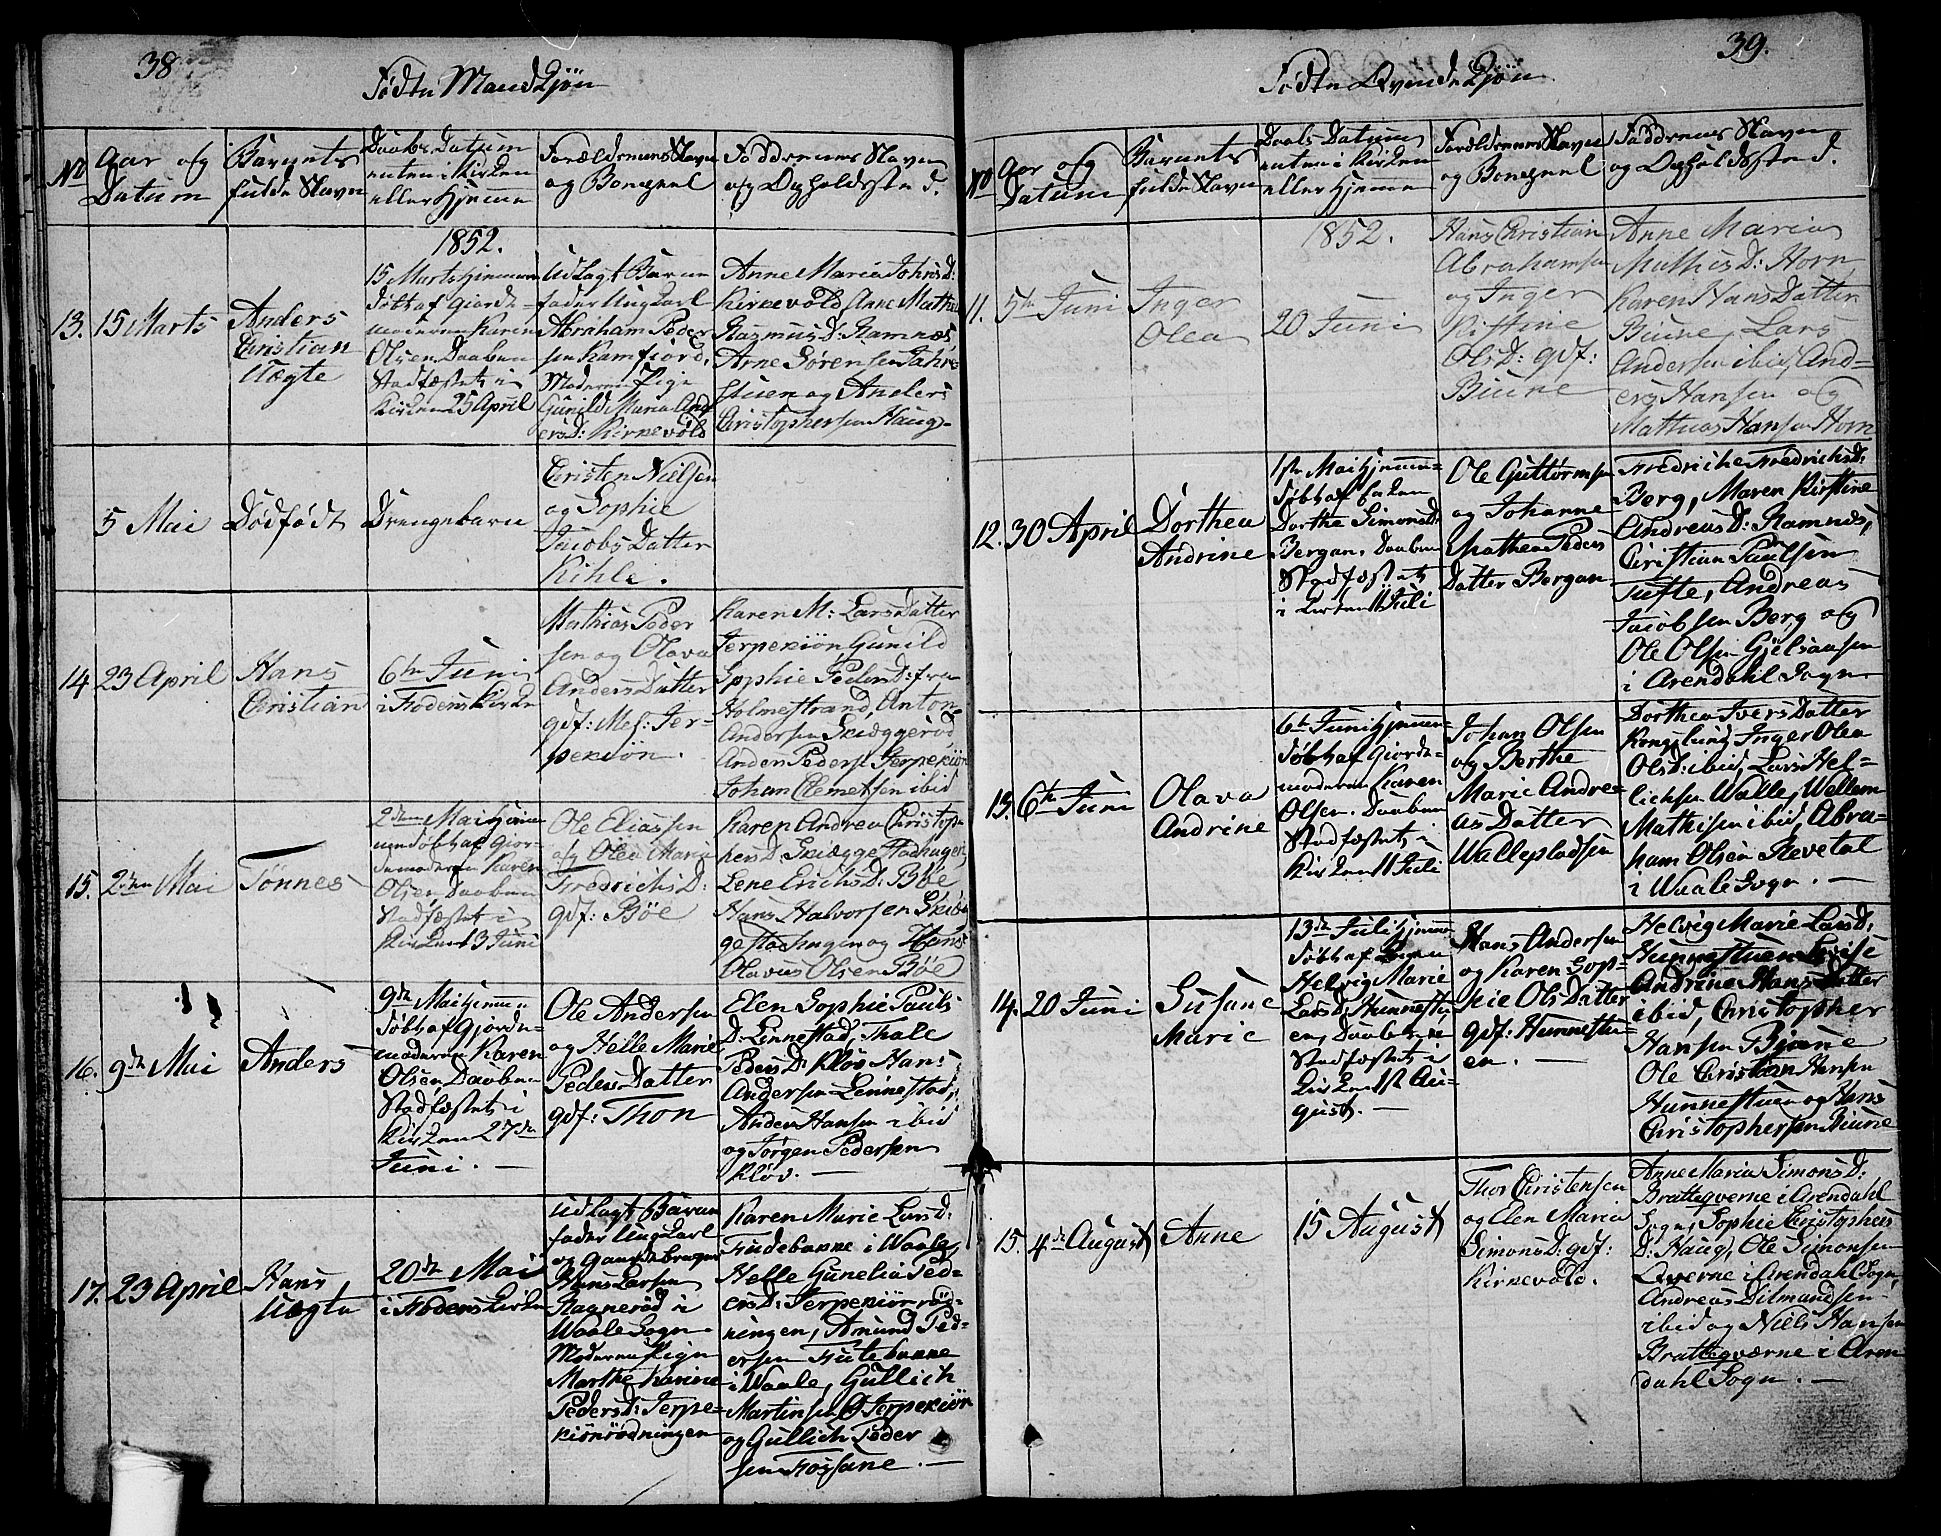 38
Fødte Mandkjøn
No
Aar og
Datum
Barnets
fulde Navn
Daabs Datum
enten i Kirken
eller Hjemme
Forældrenes Navn
og Boepæl
Faddrenes Navn
og Opholdssted.
1852.
13.
15 Marts
Anders
Christian
Uægte
15 Marts hjemme
døbt af Giorde-
moderen Karen
Olsen, Daaben
Stadfæstet i
Kirken 25 April
Udlagt Barne
fader Ungkarl
Abraham Peder
sen Ramfjord,
Moderen Pige
Gunild Maria And
ersd: Kirkevold
Anne Maria Johnsd:
Kirkevold, Anne Mathea
Rasmusd: Ramnæs,
Arne Sørensen Jahre
stuen og Anders
Christophersen Haug-
5 Mai
Dødfødt
Drengebarn
Christen Nielsen
og Sophie
Jacobs Datter
Kihle.
14
23 April
Hans
Christian
6te Juni
i Fodens Kirke
Mathias Peder
sen og Olava
Anders Datter
gdf: Mel: Jer-
pekiøn.
Karen M: Lars Datter
Jerpekiøn Gunild
Sophie Pedersd: fra
Holmestrand, Anton
Andersen Skiæggerød
Anders Peders: Jerpekiøn
Johan Clemetsen ibid
15.
2den Mai
Tønnes
2den Mai hjem
men døbt af Gior-
demoderen Karen
Olsen Daaben
Stadfæstet i
Kirken 13 Juni
Ole Eliassen
og Olea Maria
Fredrichsd:
gdf: Bøe
Karen Andrea Christop-
hersd: Skiæggestadhagen
Lene Erichsd: Bøe
Hans Halvorsen Skiæg
gestadhagen og Hans
Olavus Olsen Bøe
16.
9de Mai
Anders
9de Mai hjemme
døbt af Gjorde-
moderen Karen
Olsen, Daaben
Stadfæstet i
Kirken 27de
Juni. —
Ole Andersen
og Helle Marie
Peders Datter
gdf: Thon
Elen Sophie Pauls
D: Linnestad, Thale
Pedersd: Kløv Hans
Andersen Linnestad,
Anders Hansen ibid
og Jørgen Pedersen
Kløv. —
17.
23 April
Hans
Uægte
20de Mai
i Fodens Kirke
Udlagt Barne
fader Ungkarl
og Gaardbruger
Hans Larsen
Ragnerød i
Waale Sogn
Moderen Pige
Marthe Karine
Pedersd: Jerpe-
kiønrødningen
Karen Marie Larsd:
Fudebakke i Waale,
Helle Gunelia Ped-
ersd: Jerpekiønrød-
ningen, Amund Ped-
ersen Futebakke
i Waale, Gullich
Martinsen Ø Jerpekiøn
og Gullich Peder
sen Fossane. —
39.
Fødte Qvindekjøn
No
Aar og
Datum
Barnets
fulde Navn
Daabs Datum
enten i Kirken
eller Hjemme
Forældrenes Navn
og Boepæl
Faddrenes Navn
og Opholdssted.
1852.
11.
5te Juni
Inger
Olea
20 Juni
Hans Christian
Abrahamsen
og Inger
Kistine
Olsd: gdf:
Biune
Anne Maria
Mathisd: Horn,
Karen Hans Datter
Biune, Lars
Andersen ibid, And-
ers Hansen og
Mathias Hansen Horn
12.
30 April
Dorthea
Andrine
1ste Mai hjemme-
døbt af Enken
Dorthe Simonsd:
Bergan. Daaben
Stadfæstet
i Kirken 11 Juli
Ole Guttormsen
og Johanne
Mathea Peders
Datter Bergan.
Fredriche Fredrichsd:
Berg, Maren Kirstine
Andreasd: Ramnæs,
Christian Paulsen
Tufte, Andreas
Jacobsen Berg og
Ole Olsen Gjelsaasen
i Arendahl Sogn
13.
6te Juni
Olava
Andrine
6te Juni hjemme-
døbt af Giorde-
moderen Karen
Olsen. Daaben
Stadfæstet i
Kirken 11 Juli
Johan Olsen
og Berthe
Marie Andre-
as Datter
Wallepladsen
Dorthea Ivers Datter
Kongslund, Inger Olea
Olsd: ibid, Lars Hel-
lichsen Walle, Wellem
Mathisen ibid, Abra-
ham Olsen Revetal
i Waale Sogn. —
14.
20 Juni
Susane
Marie
13de Juli hjemme
døbt af
Helvig Marie
Larsd: Hunnestu-
en, Daaben
Stadfæstet i
Kirken 1st Au-
gust. —
Hans Andersen
og Karen Sop-
hie Ols Datter
gdf: Hunnestu-
en. —
Helvig Marie Larsd:
Hunnestuen Lovise
Andrine Hans Datter
ibid, Christopher
Hansen Bjune
Ole Christian Hansen
Hunnestuen og Hans
Christophersen Biune
15.
4de August
Anne
15 August
Thor Christensen
og Elen Maria
Simonsd: gdf:
Kirkevold.
Anne Maria Simonsd:
Brattequerne i Arendahl
Sogn, Sophie Christophers
D: Haug, Ole Simonsen
Qverne i Arendahl Sogn,
Andreas Dilmandsen
ibid og Niels Hansen
Brattegværne i Aren
dahl Sogn. —